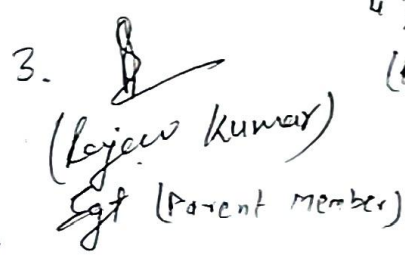 3.
(Rajeev Kumar)
Sgt (Parent Member)